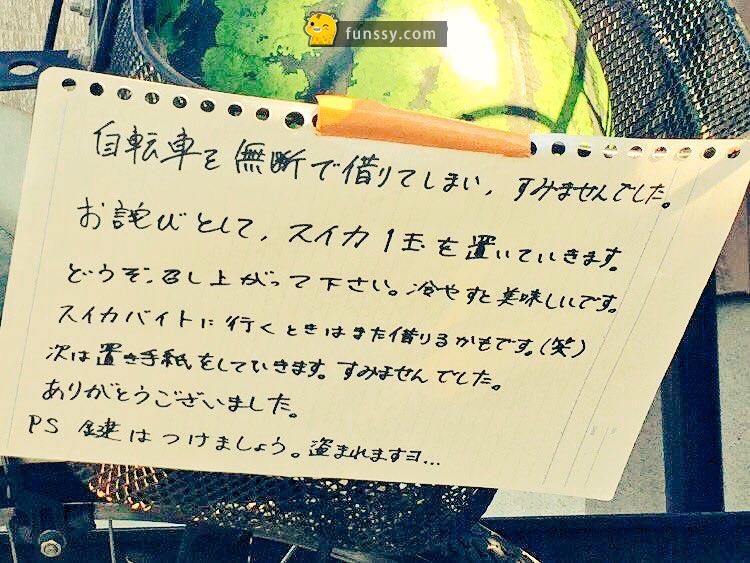 funssy.com
自転車を無断で借りてしまい、すみませんでした。
お詫びとして、スイカ1玉を置いていきます。
どうぞ、召し上がって下さい。冷やすと美味しいです。
スイカバイトに行くときはまた借りるかもです。(笑)
次は置き手紙をしていきます。すみませんでした。
ありがとうございました。
PS 鍵はつけましょう。盗まれますヨ...